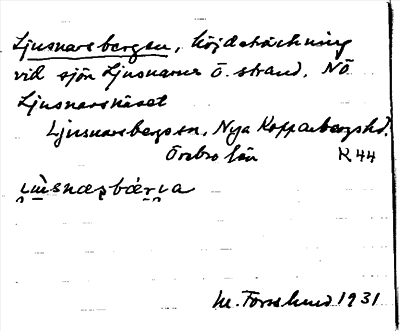 Ljusnarsbergen, höjdsträckning
vid sjön Ljusnarens Ö. strand, NÖ
Ljusnarsnäset
Ljusnarsbergs sn, Nya Kopparbergs hd.
Örebro län K 44
M. Forslund 1931